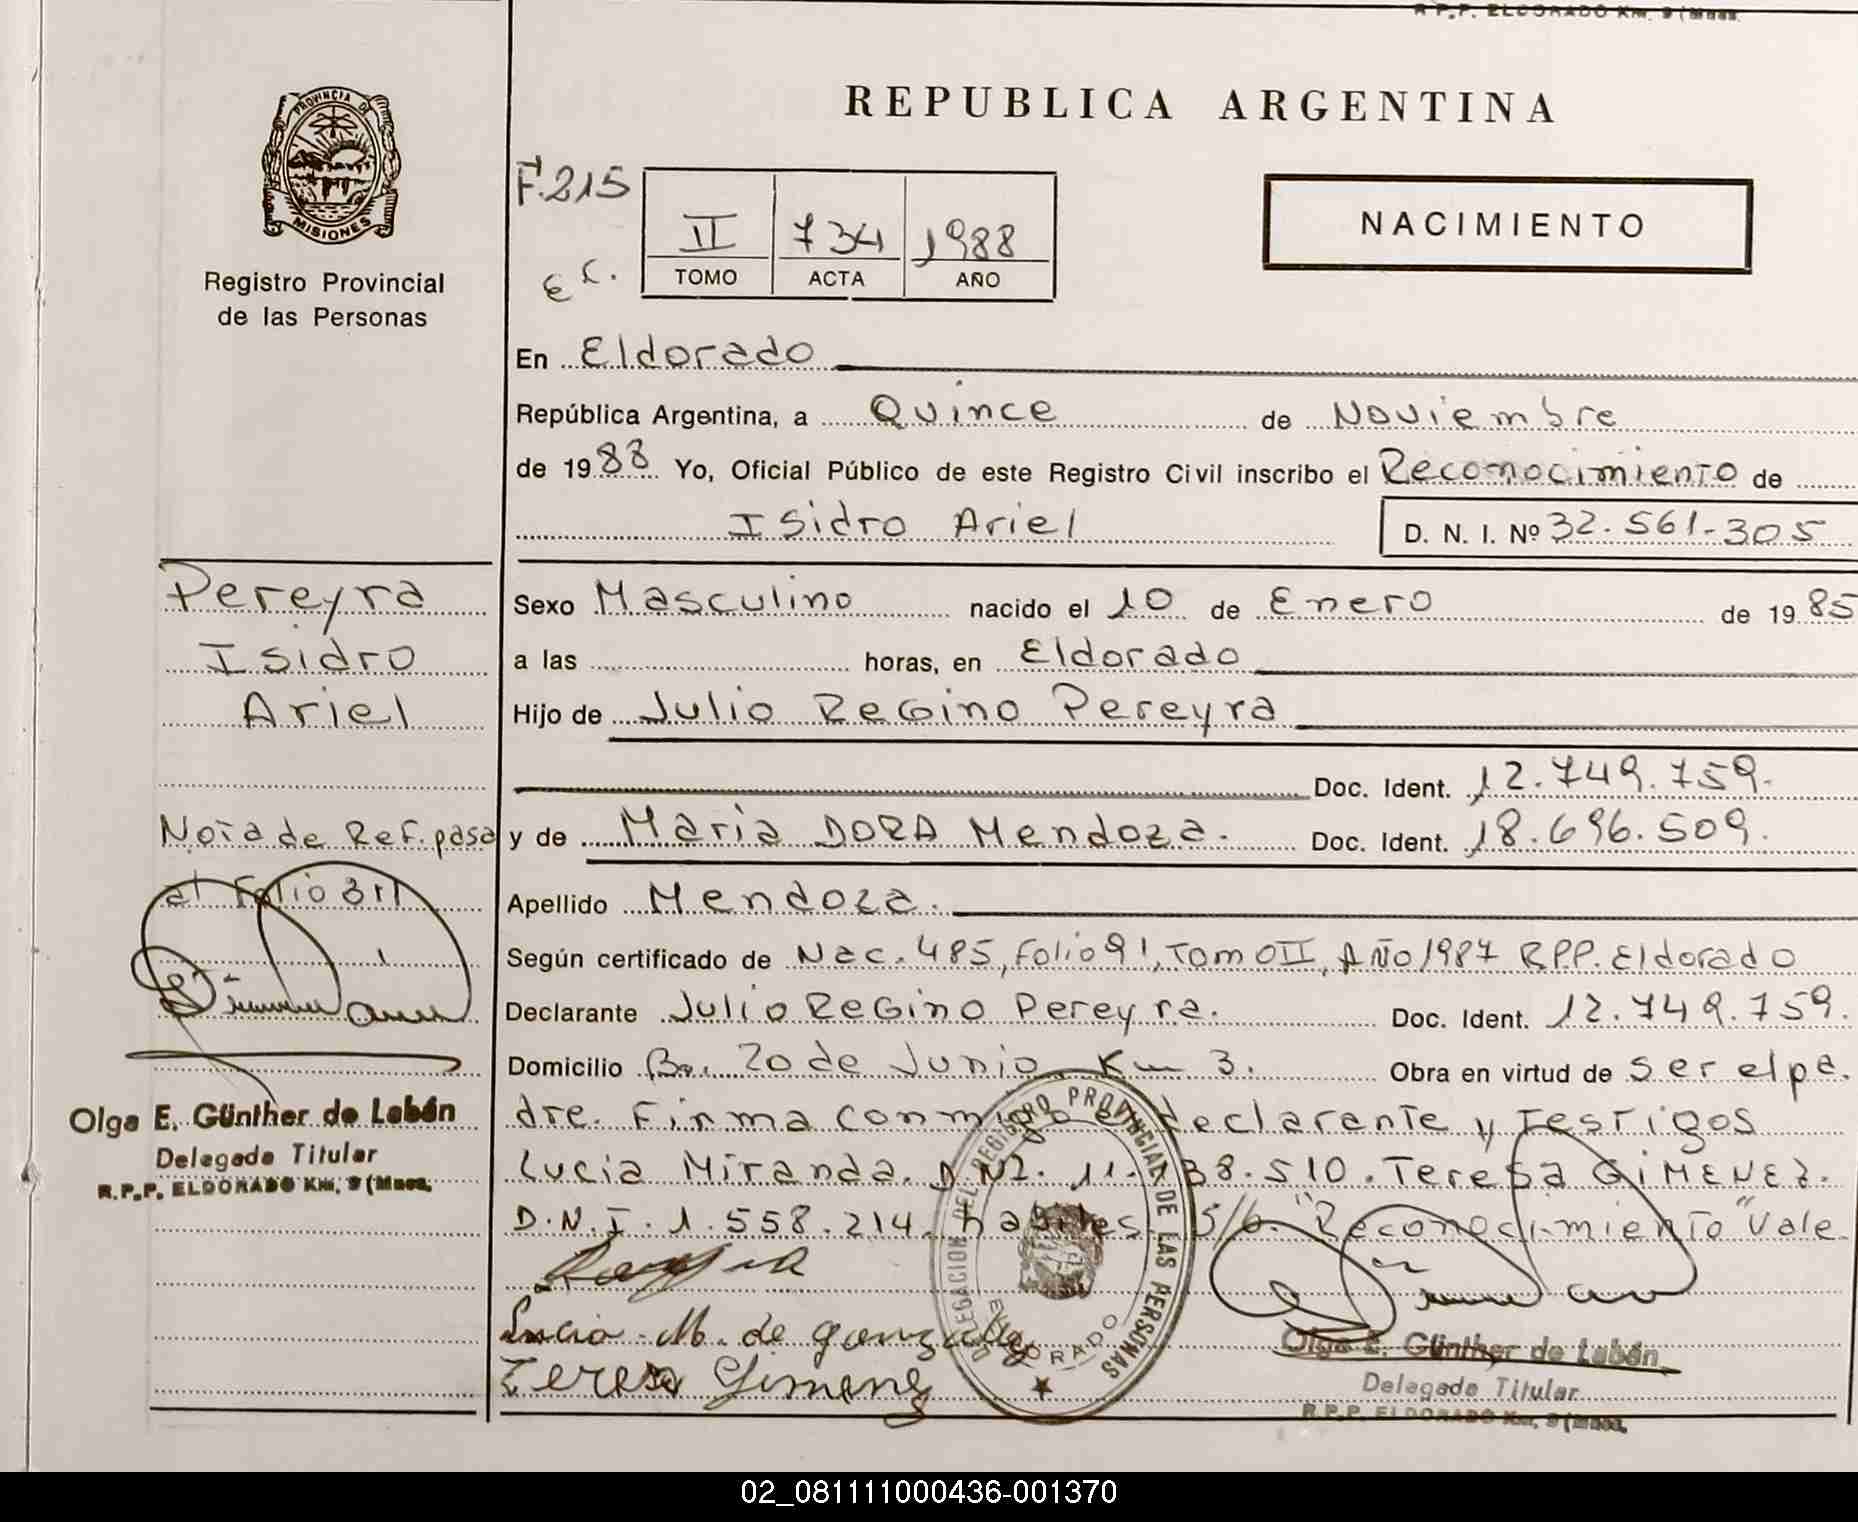 R.P.P. ELDORADO Km. 9 (Mnes.
PROVINCIA DE
MISIONES
Registro Provincial
de las Personas
REPUBLICA ARGENTINA
F.215
II 734 1988
TOMO ACTA AÑO
NACIMIENTO
En Eldorado
República Argentina, a Quince de Noviembre
de 1988 Yo, Oficial Público de este Registro Civil inscribo el Reconocimiento de
Isidro Ariel D. N. I. Nº 32.561.305
Pereyra
Isidro
Ariel
Sexo Masculino nacido el 10 de Enero de 1985
a las horas, en Eldorado
Hijo de Julio Regino Pereyra
Doc. Ident. 12.749.759.
y de Maria DORA Mendoza. Doc. Ident. 18.696.509.
Nota de Ref. pasa
al Folio 311
Apellido Mendoza.
Según certificado de Nac. 485, Folio 91, Tomo II, Año 1987 R.P.P. Eldorado
Declarante Julio Regino Pereyra. Doc. Ident. 12.749.759.
Domicilio Bo. 20 de Junio Km 3. Obra en virtud de ser el pa.
dre. Firma conmigo el declarante y Testigos
Lucia Miranda. DNI. 11. 38.510. Teresa GIMENEZ.
D.N.I. 1.558.214. habiles. S/b. "Reconocimiento" Vale.
Olga E. Günther de Labán
Delegada Titular
R.P.P. ELDORADO Km. 9 (Mnes.
Lucia M. de Gonzalez
Teresa Gimenez
DELEGACION DEL REGISTRO PROVINCIAL DE LAS PERSONAS
ELDORADO
Olga E. Günther de Labán
Delegada Titular
R.P.P. ELDORADO Km. 9 (Mnes.
02_081111000436-001370